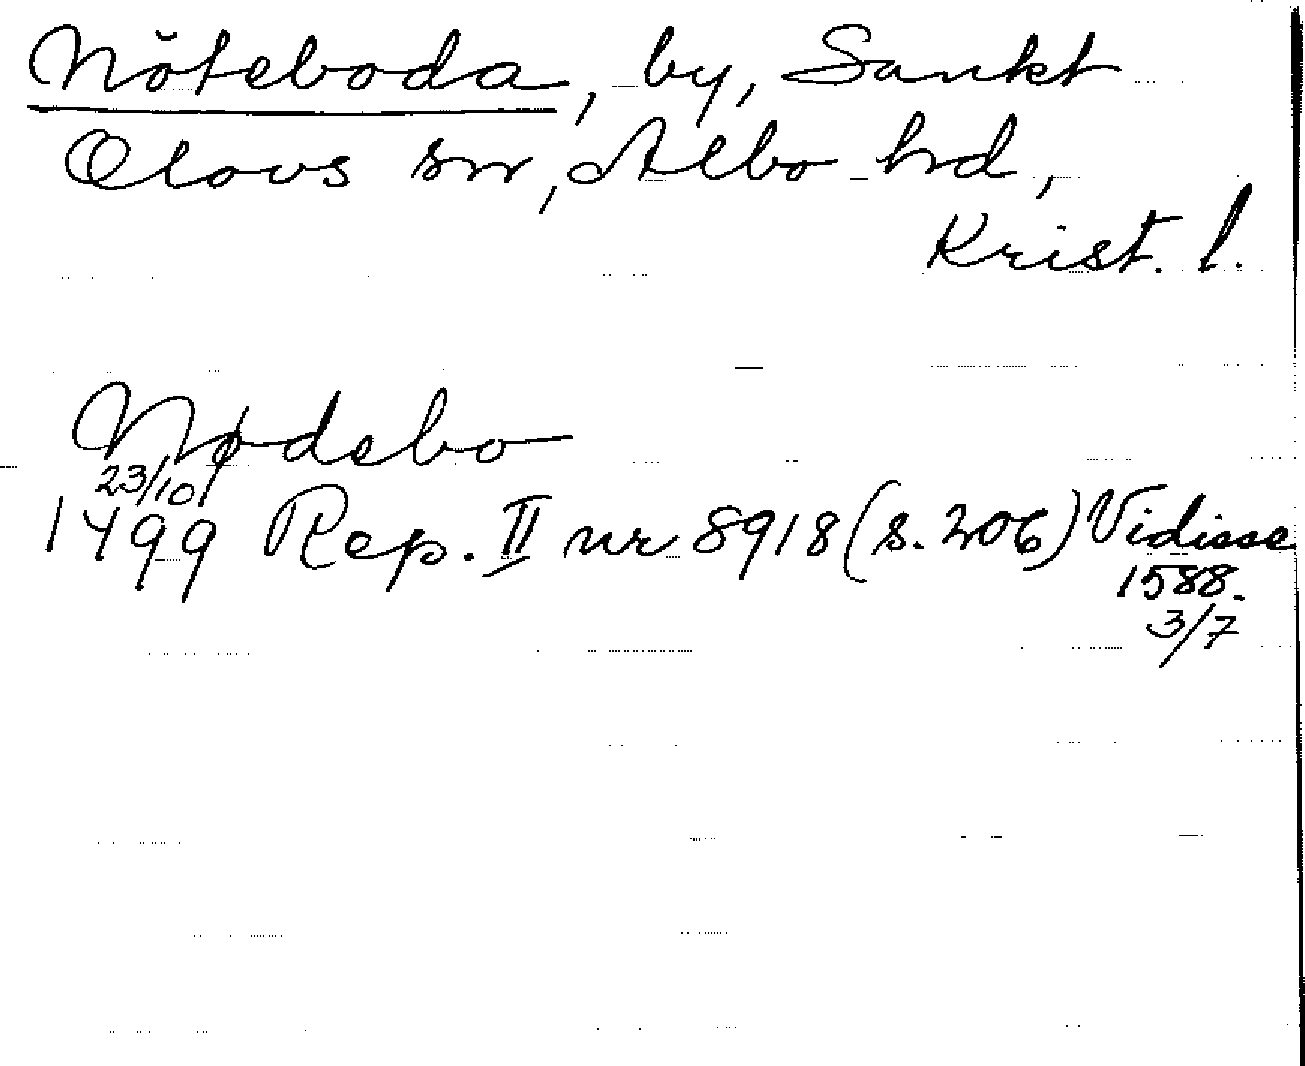 Nöteboda, by, Sankt
Olovs sn, Albo hd,
Krist. l.
Nødebo
23/10
1499 Rep. II nr 8918 (s. 206) Vidisse
1588.
3/7